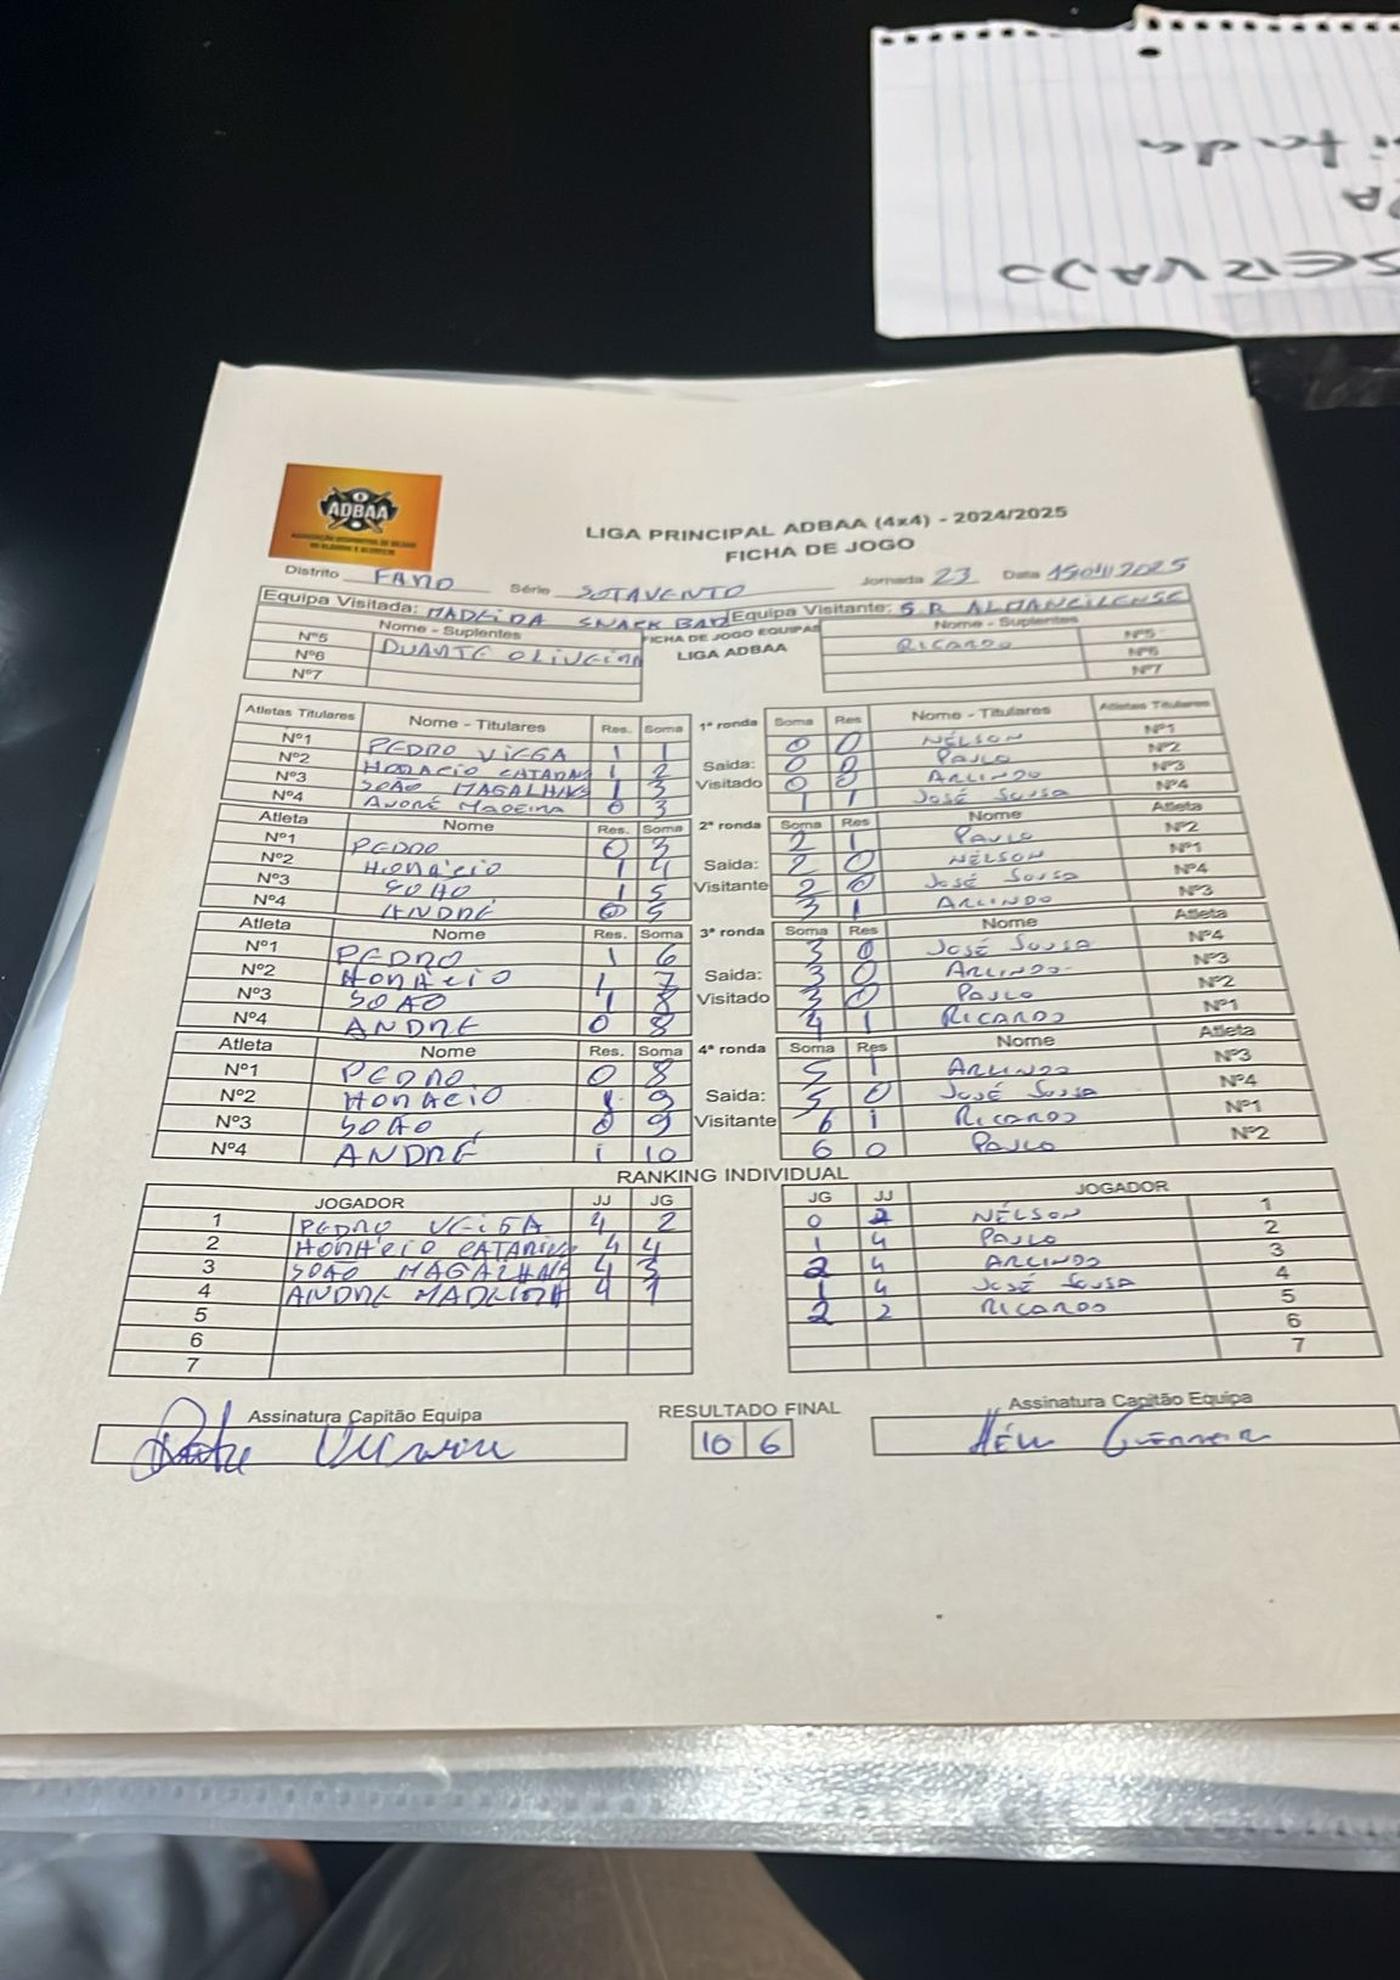 itada
SERVADO
ADBAA
LIGA PRINCIPAL ADBAA (4x4) - 2024/2025
FICHA DE JOGO
Distrito FARO Série SOTAVENTO Jornada 23 Data 2025
Equipa Visitada: MADEIRA SNACK BAR Equipa Visitante: S.R ALMANCILENSE
Nome - Suplentes FICHA DE JOGO EQUIPAS Nome - Suplentes
Nº5 DUARTE OLIVEIRA LIGA ADBAA RICARDO Nº5
Nº6 Nº6
Nº7 Nº7
Atletas Titulares Nome - Titulares Res. Soma 1ª ronda Soma Res Nome - Titulares Atletas Titulares
Nº1 PEDRO VIEGA 1 1 0 0 NÉLSON Nº1
Nº2 HORÁCIO CATARINO 1 2 Saida: 0 0 PAULO Nº2
Nº3 JOÃO MAGALHÃES 1 3 Visitado 0 0 ARLINDO Nº3
Nº4 ANDRÉ MADEIRA 0 3 1 1 JOSÉ SOUSA Nº4
Atleta Nome Res. Soma 2ª ronda Soma Res Nome Atleta
Nº1 PEDRO 0 3 2 1 PAULO Nº2
Nº2 HORÁCIO 1 4 Saida: 2 0 NÉLSON Nº1
Nº3 JOÃO 1 5 Visitante 2 0 JOSÉ SOUSA Nº4
Nº4 ANDRÉ 0 5 3 1 ARLINDO Nº3
Atleta Nome Res. Soma 3ª ronda Soma Res Nome Atleta
Nº1 PEDRO 1 6 3 0 JOSÉ SOUSA Nº4
Nº2 HORÁCIO 1 7 Saida: 3 0 ARLINDO Nº3
Nº3 JOÃO 1 8 Visitado 3 0 PAULO Nº2
Nº4 ANDRÉ 0 8 4 1 RICARDO Nº1
Atleta Nome Res. Soma 4ª ronda Soma Res Nome Atleta
Nº1 PEDRO 0 8 5 1 ARLINDO Nº3
Nº2 HORÁCIO 1 9 Saida: 5 0 JOSÉ SOUSA Nº4
Nº3 JOÃO 0 9 Visitante 6 1 RICARDO Nº1
Nº4 ANDRÉ 1 10 6 0 PAULO Nº2
RANKING INDIVIDUAL
JOGADOR JJ JG JG JJ JOGADOR
1 PEDRO VEIGA 4 2 0 2 NÉLSON 1
2 HORÁCIO CATARINO 4 4 1 4 PAULO 2
3 JOÃO MAGALHÃES 4 3 2 4 ARLINDO 3
4 ANDRÉ MADEIRA 4 1 1 4 JOSÉ SOUSA 4
5 2 2 RICARDO 5
6 6
7 7
Assinatura Capitão Equipa RESULTADO FINAL Assinatura Capitão Equipa
10 6